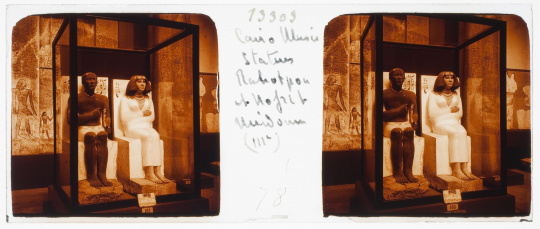 13303
Cairo Musée
Statues
Rahotpou
et Nofrit
Meidoum
(IIIe)
78